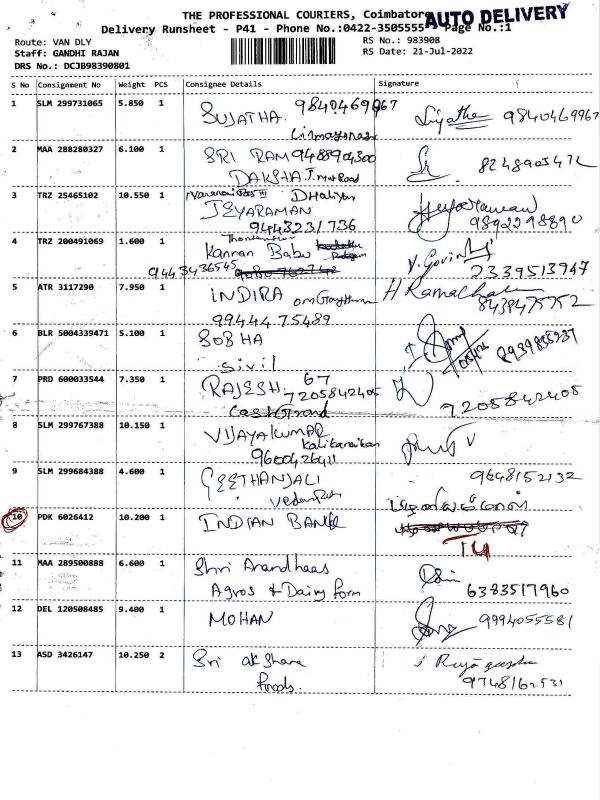 THE PROFESSIONAL COURIERS, Coimbatore
AUTO DELIVERY
Delivery Runsheet - P41 - Phone No.:0422-3505555 Page No.:1
Route: VAN DLY
RS No.: 983908
Staff: GANDHI RAJAN
RS Date: 21-Jul-2022
DRS No.: DCJB98390801
S No Consignment No Weight PCS Consignee Details Signature
1 SLM 299731065 5.850 1 SUJATHA 9840469967 9840469967
2 MAA 288280327 6.100 1 SRI RAM 948894300
DAKSHA Road 8248903472
3 TRZ 25465102 10.550 1
JEYARAMAN Jeyaraman
9443231736 9892298890
4 TRZ 200491069 1.600 1 Kannan Babu V. Govin
9443436545 2339513947
5 ATR 3117290 7.950 1 INDIRA H Ramacha
9944475489 8439475752
6 BLR 5004339471 5.100 1 SOBHA
Sivil
7 PRD 600033544 7.350 1 RAJESH 67
7205842405 7205842405
8 SLM 299767388 10.150 1 VIJAYAKUMAR
9600426411
9 SLM 299684388 4.600 1 GEETHANJALI 9648152132
10 PDK 6026412 10.200 1 INDIAN BANK
11 MAA 289500888 6.600 1 Shri Anandhaas
Agros & Dairy form 6383517960
12 DEL 120508485 9.400 1 MOHAN 9994055581
13 ASD 3426147 10.250 2 Sri akshara
foods. 9748162531